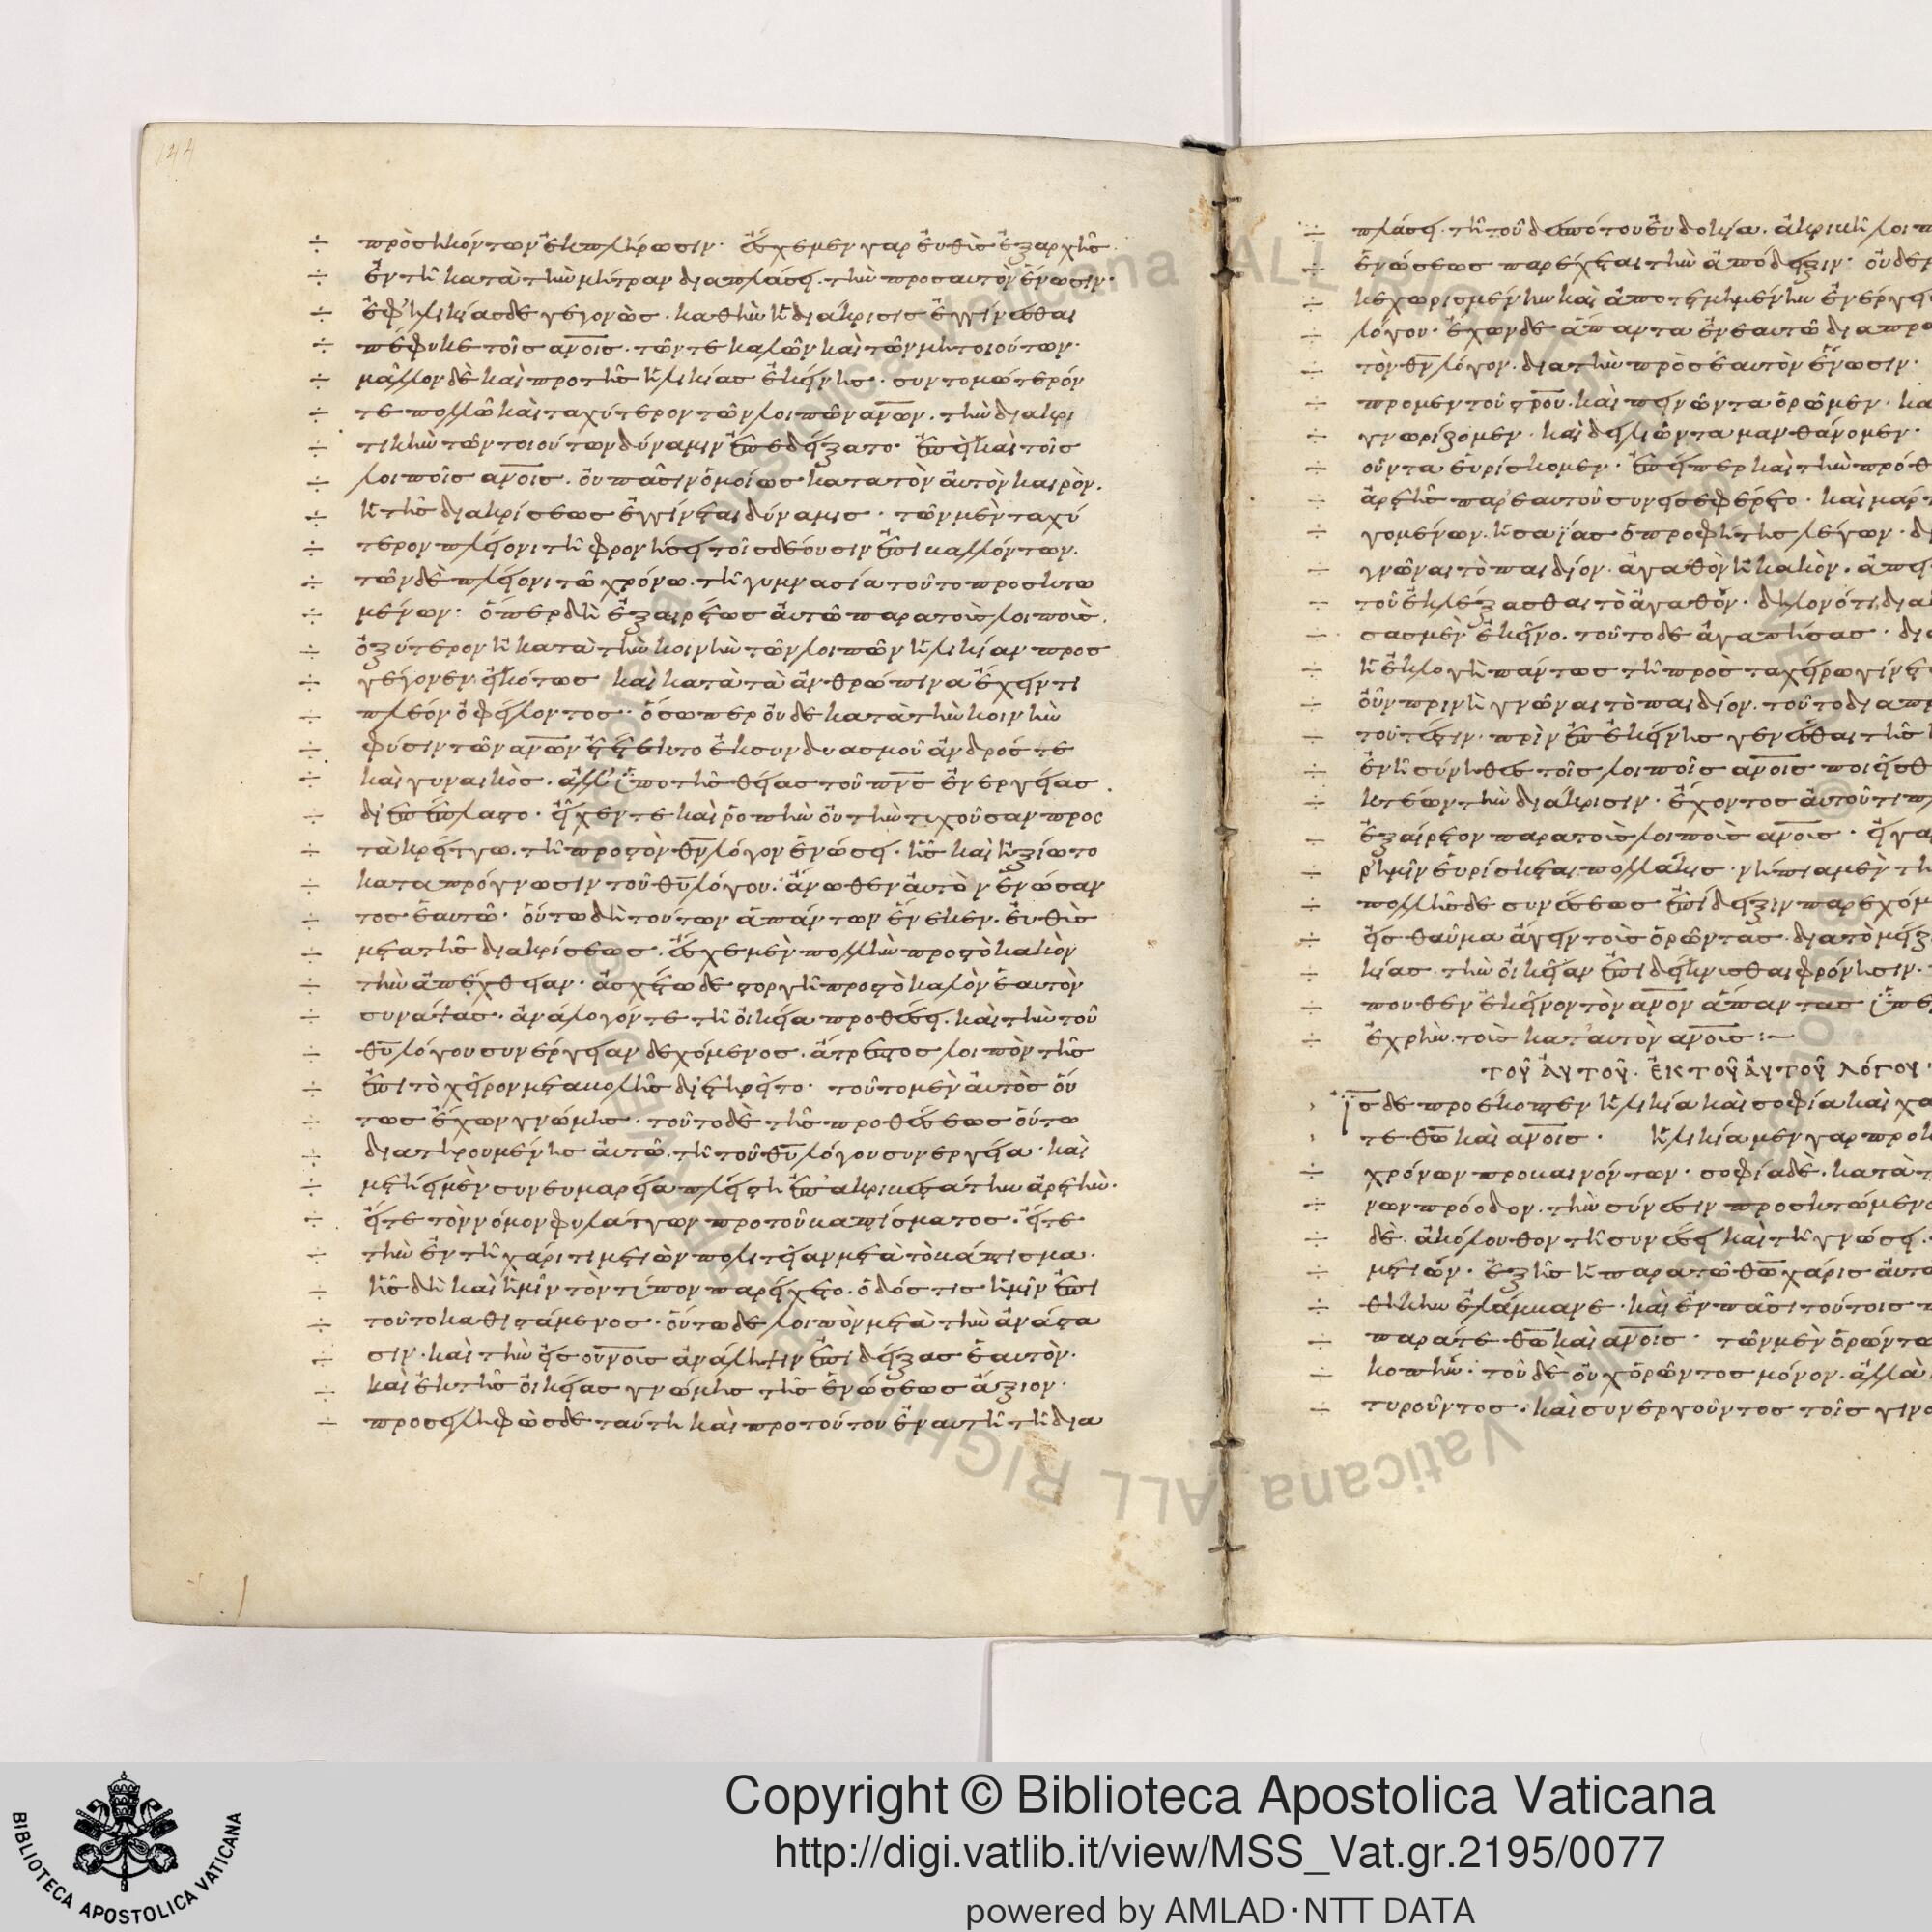 144
προσηκόντων ἐκπλήρωσιν· ἔσχε μὲν γὰρ εὐθὺς ἐξ ἀρχῆς
ἐν τῆ κατὰ τὴν μήτραν διαπλάσει. τὴν πρὸς αὐτὸν ἕνωσιν·
ἐφ' ἡλικίας δὲ γεγονὼς. καθ' ἣν ἡ διάκρισις ἐγγίνεσθαι
πέφυκε τοῖς ανοις. τῶν τε καλῶν καὶ τῶν μὴ τοιούτων·
μᾶλλον δὲ καὶ προ τῆς ἡλικίας ἐκείνης. συντομώτερόν
τε πολλῶ καὶ ταχύτερον τῶν λοιπῶν ανων. τὴν διακρι
τικὴν τῶν τοιούτων δύναμιν ἐπεδείξατο· ἐπεὶ καὶ τοῖς
λοιποῖς ανοις. οὐ πᾶσιν ὁμοίως κατα τὸν αὐτὸν καιρὸν.
ἡ τῆς διακρίσεως ἐγγίνεται δύναμις· τῶν μὲν ταχύ
τερον πλείονι τῆ φρονήσει τοῖς δέουσιν ἐπιβαλλόντων.
τῶν δὲ πλείονι τῶ χρόνω. τῆ γυμνασία τοῦτο προσκτω
μένων· ὅπερ δὴ ἐξαιρέτως αὐτῶ παρα τοὺς λοιποὺς.
ὀξύτερον ἢ κατὰ τὴν κοινὴν τῶν λοιπῶν ἡλικίαν προσ
γέγονεν εἰκότως καὶ κατὰ τὰ ἀνθρώπινα ἔχειν τι
πλέον ὀφείλοντος· ὅσω περ οὐδε κατὰ τὴν κοινὴν
φύσιν τῶν ανων ἐτέτεκτο ἐκ συνδυασμοῦ ἀνδρός τε
καὶ γυναικὸς. ἀλλ' ὑπο τῆς θείας τοῦ πνς ἐνεργείας
διεπέπλαστο· εἶχεν τε καὶ ῥοπὴν οὐ τὴν τυχοῦσαν προς
τὰ κρείττω. τῆ προς τὸν θν λόγον ἑνώσει. ἧς καὶ ἠξίωτο
κατα πρόγνωσιν τοῦ θυ λόγου. ἄνωθεν αὐτὸν ἑνώσαν
τος ἑαυτῶ· οὕτω δὴ τούτων ἁπάντων ἕνεκεν. εὐθὺς
μετα τῆς διακρίσεως. ἔσχε μὲν πολλὴν προς τὸ κακὸν
τὴν ἀπέχθειαν· ἀσχέτω δε στοργῆ προς τὸ καλὸν ἑαυτὸν
συνάψας. ἀνάλογόν τε τῆ οἰκεία προθέσει. καὶ τὴν τοῦ
θυ λόγου συνέργειαν δεχόμενος. ἄτρεπτος λοιπὸν τῆς
ἐπι τὸ χεῖρον μεταβολῆς διετηρεῖτο· τοῦτο μὲν αὐτὸς οὕ
τως ἔχων γνώμης. τοῦτο δὲ τῆς προθέσεως οὕτω
διατηρουμένης αὐτῶ. τῆ τοῦ θυ λόγου συνεργεία. καὶ
μετήει μὲν συν ευμαρεία πλείστη ἐπ' ἀκριβεστάτην ἀρετὴν.
εἴτε τὸν νόμον φυλάττων προ τοῦ βαπτίσματος. εἴτε
τὴν ἐν τῆ χάριτι μετιὼν πολιτείαν μετὰ τὸ βάπτισμα.
ἧς δὴ καὶ ἡμῖν τὸν τύπον παρείχετο. ὁδός τις ἡμῖν ἐπι
τοῦτο καθιστάμενος. οὕτω δε λοιπὸν μετὰ τὴν ἀνάστα
σιν. καὶ τὴν εἰς ουνοις ἀνάληψιν ἐπιδείξας ἑαυτὸν.
καὶ ἐκ τῆς οἰκείας γνώμης τῆς ἑνώσεως ἄξιον·
προσειληφὼς δε ταύτη καὶ προ τούτου ἐν αυτῆ τῆ δια
πλάσει. τῆ τοῦ δεσπότου εὐδοκία. ἀκριβῆ λοιπ
ἑνώσεως παρέχεται τὴν ἀπόδειξιν· οὐδεμ
κεχωρισμένην καὶ ἀποτετμημένην ἐνέργει
λόγου. ἔχων δε ἅπαντα ἐν ἑαυτῶ διαπρα
τὸν θν λόγον. δια τὴν πρὸς ἑαυτὸν ἕνωσιν·
προ μεν τοῦ στρου. καὶ πεινῶντα ὁρῶμεν. κα
γνωρίζομεν. καὶ δειλιῶντα μανθάνομεν·
οῦντα εὑρίσκομεν. ἐπείπερ καὶ τὴν πρόθ
ἀρετῆς παρ' εαυτοῦ συνεισεφέρετο. καὶ μάρτ
γομένων. ἡσαΐας ὁ προφήτης λέγων. δι
γνῶναι τὸ παιδίον. ἀγαθὸν ἢ κακὸν. ἀπει
τοῦ ἐκλέξασθαι τὸ ἀγαθὸν. δηλονότι δια
σας μὲν ἐκεῖνο. τοῦτο δε ἀγαπήσας. δι
ἡ ἐκλογὴ πάντως τῆ προς τα χείρω γίνετ
οὖν πρινὴ γνῶναι τὸ παιδίον. τοῦτο διαπρ
τοῦτέστιν. πρὶν ἐπ' ἐκείνης γενέσθαι τῆς
ἐν ἧ σύνηθες τοῖς λοιποῖς ανοις ποιεῖσθ
κτέων τὴν διάκρισιν. ἔχοντος αὐτοῦ τι πλ
ἐξαίρετον παρα τοὺς λοιποὺς ανους. εἰ γα
ρ ἡμῖν εὑρίσκεται πολλάκις. νήπια μὲν τὴ
πολλῆς δε συνέσεως ἐπίδειξιν παρεχόμ
εἰς θαῦμα ἄγειν τοὺς ὁρῶντας. δια τὸ μείζ
κίας τὴν οἰκείαν ἐπιδείκνυσθαι φρόνησιν.
που θεν ἐκεῖνον τὸν ανον ἅπαντας ὑπε
ἐχρῆν. τοὺς κατ' αυτὸν ανους :—
τοῦ αὐτοῦ. ἐκ τοῦ αὐτοῦ λόγου·
ις δε προέκοπτεν ἡλικία καὶ σοφία καὶ χα
τε θω καὶ ανοις· ἡλικία μεν γαρ προκ
χρόνων προβαινόντων· σοφία δὲ. κατὰ τ
νων πρόοδον. τὴν σύνεσιν προσκτώμενο
δὲ. ἀκόλουθον τῆ συνέσει καὶ τῆ γνώσει.
μετιών. ἐξ ἧς ἡ παρα τῶ θω χάρις αὐτῶ
θήκην ἐλάμβανε. καὶ ἐν πᾶσι τούτοις π
παρά τε θω καὶ ανοις· τῶν μὲν ὁρώντω
κοπήν· τοῦ δε οὐχ ὁρῶντος μόνον. ἀλλὰ
τυροῦντος. καὶ συνεργοῦντος τοῖς γινο
Copyright © Biblioteca Apostolica Vaticana
http://digi.vatlib.it/view/MSS_Vat.gr.2195/0077
powered by AMLAD·NTT DATA
BIBLIOTECA APOSTOLICA VATICANA